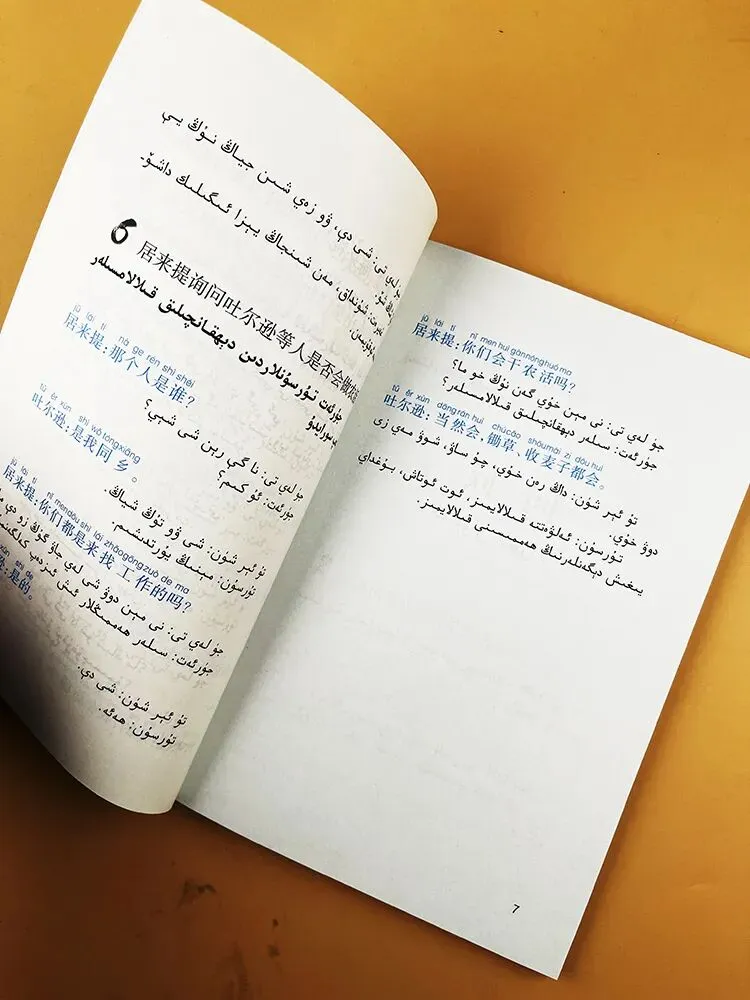 جۇ لەي تى: شى دې، ۋۇ زەي شىن جياڭ نۇڭ يې
جۈرئەت: شۇنداق، مەن شىنجاڭ يېزا ئىگىلىك داشۆ-
6 居来提询问吐尔逊等人是否会做农活
جۈرئەت تۇرسۇنلاردىن دېھقانچىلىق قىلالامسىلەر
دەپ سورايدۇ
jū lái tí nà ge rén shì shéi
居来提:那个人是谁?
جۇ لەي تى: نا گې رېن شى شېي؟
جۈرئەت: ئۇ كىم؟
tǔ ěr xùn shì wǒ tóngxiāng
吐尔逊:是我同乡。
تۇ ئېر شۈن: شى ۋو تۇڭ شياڭ.
تۇرسۇن: مېنىڭ يۇرتدىشىم.
jū lái tí nǐ mendōu shì lái zhǎogōngzuò de ma
居来提:你们都是来找工作的吗?
جۇ لەي تى: نى مېن دوۋ شى لەي جاۋ گۇڭ زو دې
جۈرئەت: سىلەر ھەممىڭلار ئىش ئىزدەپ كەلگەن
xùn shì de
逊:是的。
تۇ ئېر شۈن: شى دې.
تۇرسۇن: ھەئە.
jū lái tí nǐ men huì gànnónghuó ma
居来提:你们会干农活吗?
جۇ لەي تى: نى مېن خۇي گەن نۇڭ خو ما؟
جۈرئەت: سىلەر دېھقانچىلىق قىلالامسىلەر؟
tǔ ěr xùn dāngrán huì chúcǎo shōumài zi dōu huì
吐尔逊:当然会,锄草、收麦子都会。
تۇ ئېر شۈن: داڭ رەن خۇي، چۇ ساۋ، شوۋ مەي زى
دوۋ خۇي.
تۇرسۇن: ئەلۋەتتە قىلالايمىز، ئوت ئوتاش، بۇغداي
يىغىش دېگەنلەرنىڭ ھەممىسىنى قىلالايمىز.
7